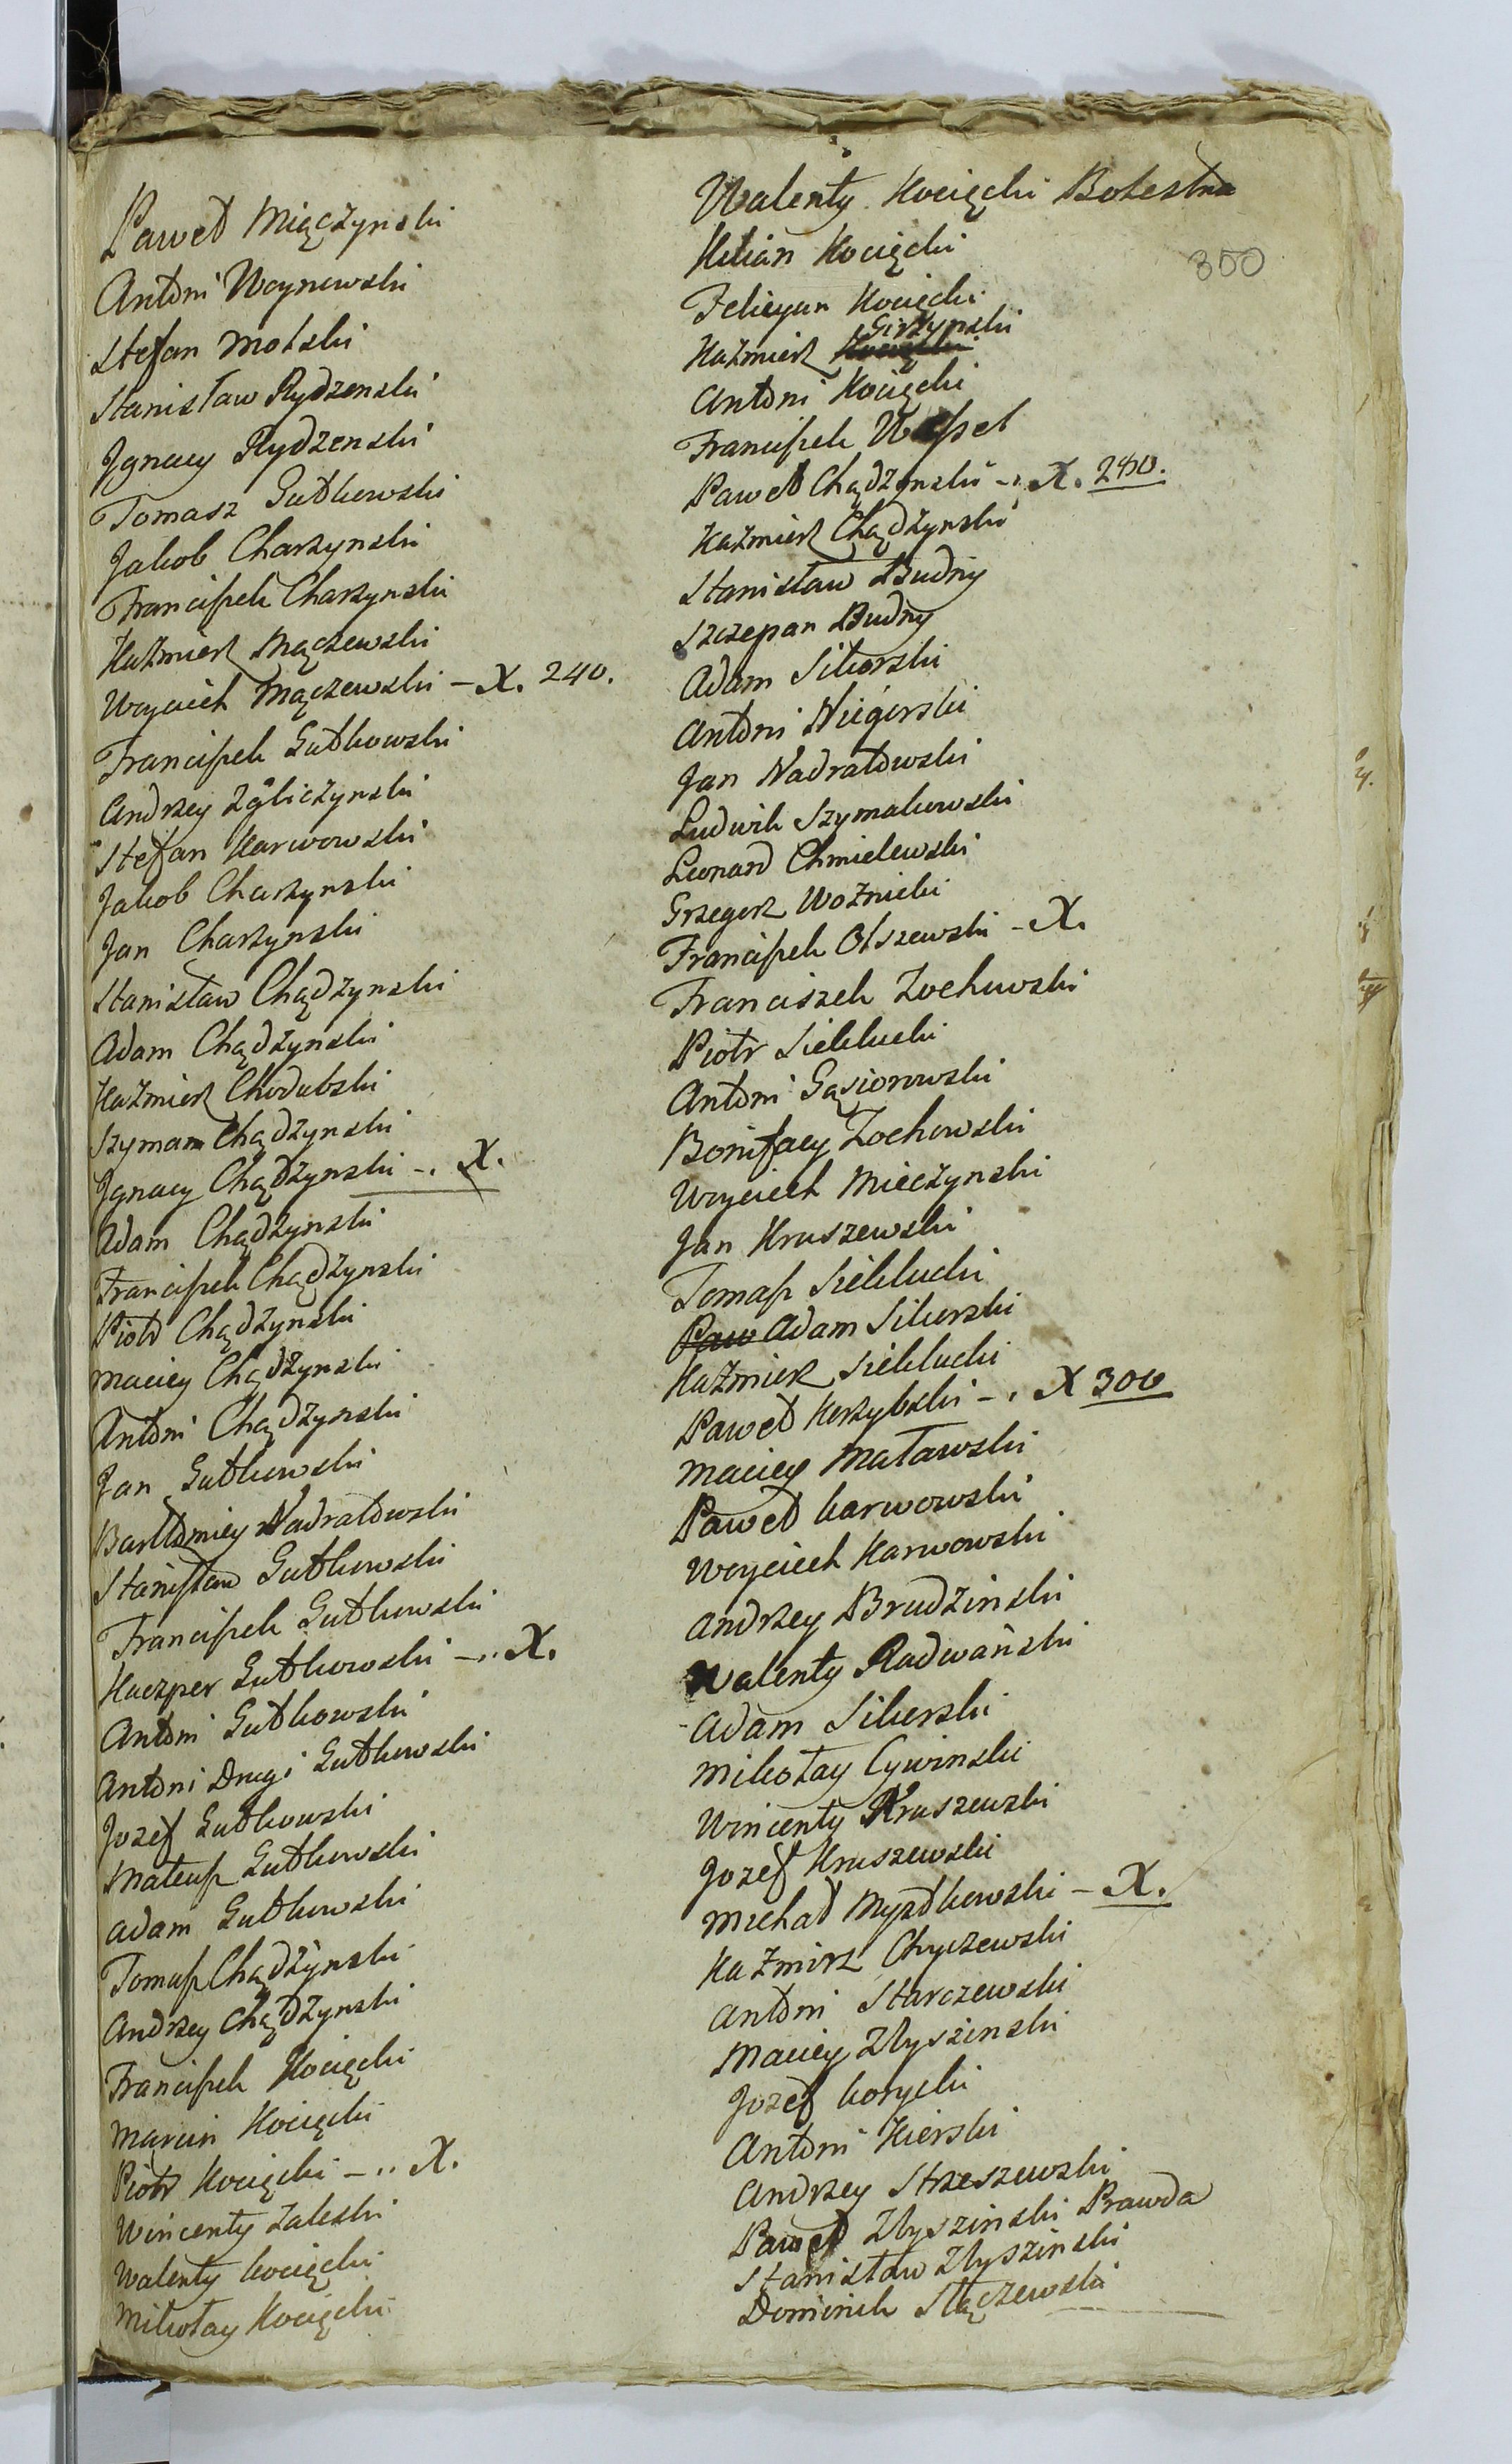 Paweł Miączynski
Antoni Woynowski
Stefan Molski
Stanisław Rydzenski
Jgnacy Rydzenski
Tomasz Gutkowski
Jakob Charzynski
Franciszek Charzynski
Kaźmierz Mączewski
Woyciech Mączewski - X. 240.
Franciszek Gutkowski
Andrzey Zgliczynski
Stefan Karwowski
Jakob Charzynski
Jan Charzynski
Stanisław Chądzynski
Adam Chądzynski
Kaźmierz Chodubski
Szyman Chądzynski
Jgnacy Chądzynski -. X.
Adam Chądzynski
Franciszek Chądzynski
Piotr Chądzynski
Maciey Chądzynski
Antoni Chądzynski
Jan Gutkowski
Bartłomiey Nadratowski
Stanisław Gutkowski
Franciszek Gutkowski
Kaczper Gutkowski -.. X.
Antoni Gutkowski
Antoni Drugi Gutkowski
Jozef Gutkowski
Mateusz Gutkowski
Adam Gutkowski
Tomasz Chądżynski
Andrzey Chądżynski
Franciszek Kocięcki
Marcin Kocięcki
Piotr Kocięcki -.. X.
Wincenty Zaleski
Walenty kocięcki
Mikołay Kocięcki
Walenty Kocięcki Bolesta
Kilian Kocięcki
Felicyan Kocięcki
Girzynski
Kaźmierz Kocięcki
Antoni Kocięcki
Franciszek Wessel
Paweł Chądzynski -. X. 280.
Kaźmierz Chądzynski
Stanisław Budny
Szczepan Budny
Adam Sikorski
Antoni Nieg̓orski
Jan Nadratowski
Ludwik Szymakowski
Leonard Chmielewski
Grzegorz Woźnicki
Franciszek Olszewski - X.
Franciszek Zochowski
Piotr Sieklucki
Antoni Gąsiorowski
Bonifacy Zochowski
Woyciech Mieczynski
Jan Kruszewski
Tomasz Sieklucki
Paw Adam Sikorski
Kaźmierz Sieklucki
Paweł Korzybski -. X 300
Maciey Maławski
Paweł karwowski
Woyciech Karwowski
Andrzey Brudzinski
Walenty Radwański
Adam Sikorski
Mikołay Cywinski
Wincenty Kruszewski
Jozef Kruszewski
Michał Myszkowski - X.
Kaźmirz Chyczewski
Antoni Starczewski
Maciey Zbyszinski
Jozef korycki
Antoni Kierski
Andrzey Strzeszewski
Paweł Zbyszinski Prawda
Stanisław Zbyszinski
Dominik Stączewski
350